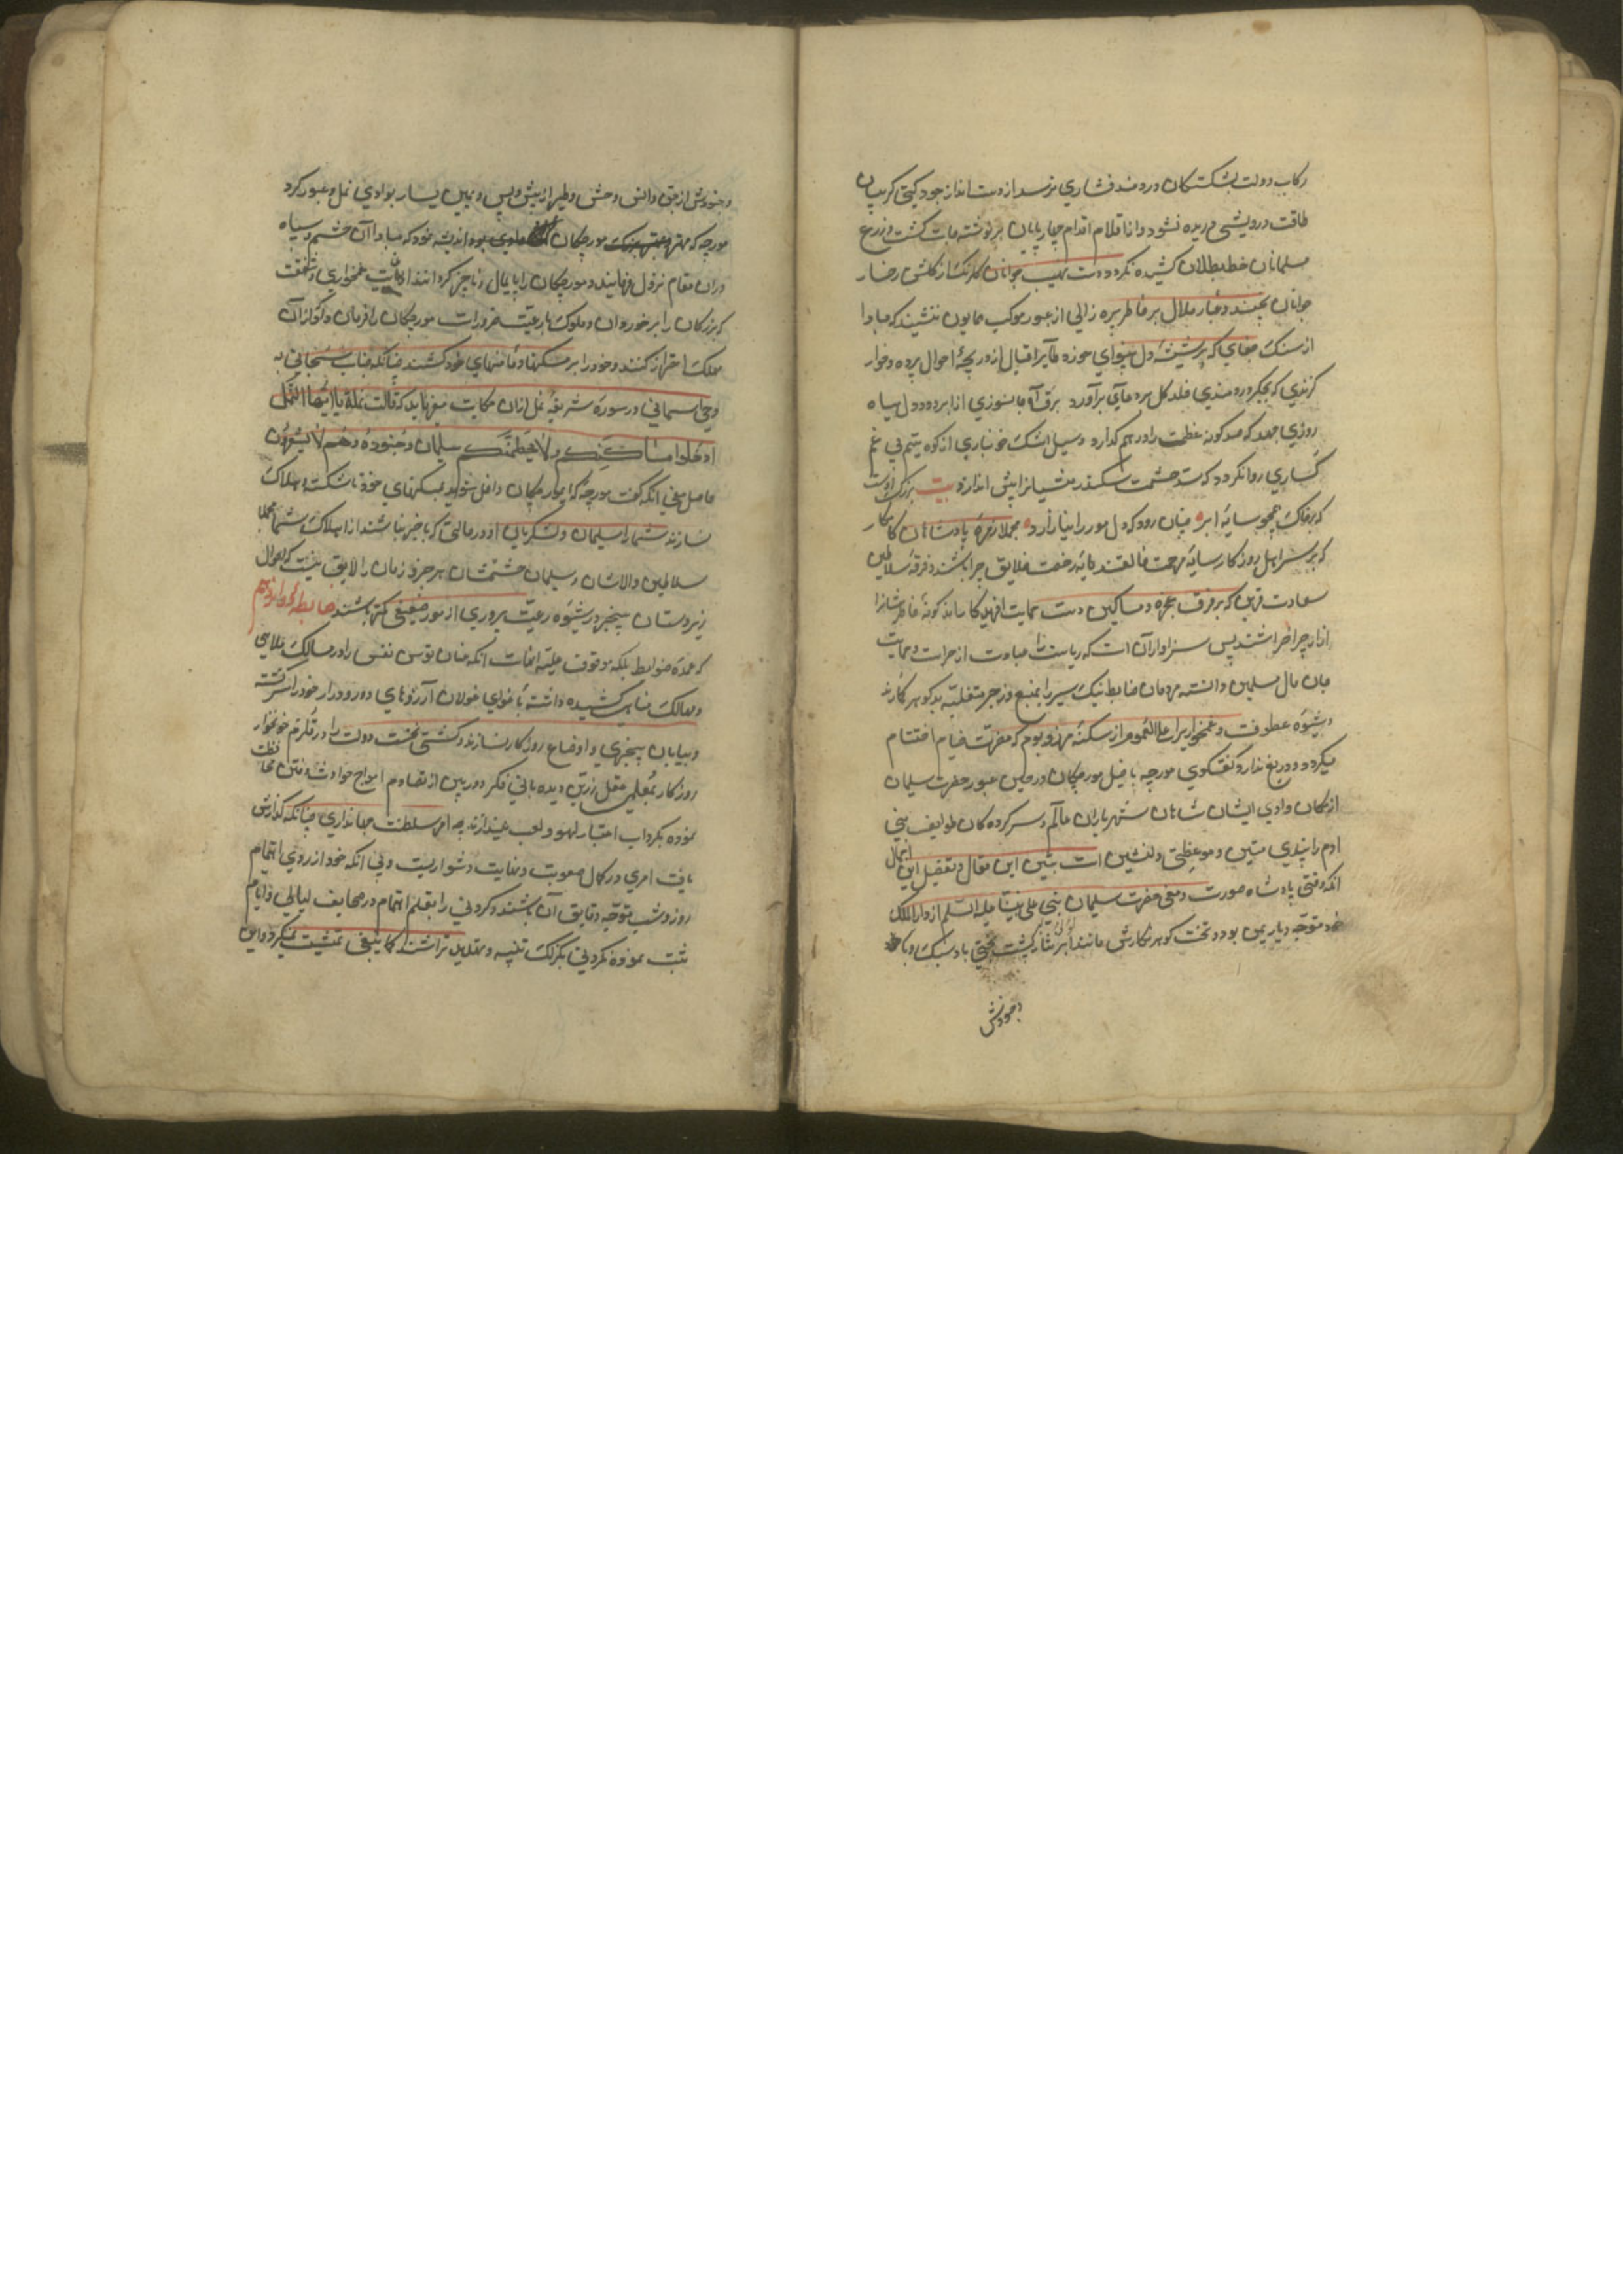 رکاب دولت بشکستکان دردمند فشاری نرسد از دست انداز جود کیتی کریبان
طاقت درویشی دریده نشود و از اقلام اقدام چارپایان بر نوشته جات کشت و زرع
مسلمانان خط بطلان کشیده نکردد دست نهیب جوانان کلرنک از کلشن رخسار
جوانان نچیند و غبار ملال بر خاطر پیره زالی از عبور موکب همایون ننشیند که مبادا
از سنک جفای که بر شیشه دل بینوای خورد طایر اقبال از دریچه احوال پرد و خار
کزندی که بجکر دردمندی خلد کل بر دعای برآورد برق آه جانسوزی از ابر دود دل سیاه
روزی جهد که صد کوه عظمت را در هم کدازد و سیل اشک خونباری از کوه یتیم بی غم
کساری روانکردد که سد حشمت سکندر منشیانرا پیش اندازد بیت بزرک اوست
که بر خاک همچو سایه ابر چنان رود که دل مور را نیازارد مجملا زمره پادشاهان کامکار
که بر سر اهل روزکار سایه مرحمت خالقند مایه زحمت خلایق چرا باشند و فرقه سلاطین
سعادت قرین که بر فرق عجزه و مساکین دست حمایت
ازار چرا خراشند پس سزاوار آن است که ریاست را عبادت از حراست و حمایت
جان مال مسلمین دانسته مردمان ضابط نیک سیر را بمنع و زجر متغلبه بدکوهر کمارند
و شیوه عطوفت و غمخواریرا علی العموم از سکنه مرز و بوم که مضرت
میکردد دریغ ندارد و کفتکوی مورچه با خیل مورچکان در حین عبور حضرت سلیمان
از مکان وادی ایشان شاهان شهریاران عالم و سرکرده کان طوایف بنی
ادم را پندی متین و موعظتی دلنشین است تبیین این مقال و تفصیل این اجمال
انکه وقتی پادشاه صورت و معنی حضرت سلیمان نبی علی نبینا علیه السلم از دار الملک
خود متوجه دیار یمن بود و تخت کوهر نکارش مانند ابر بر پشت بختی باد سبک
و جنودش
و جنودش از جن و انس و حش و طیر از پیش و پس و یمین یسار بوادی نمل عبور کرد
مورچه که مهتر مورچکان وادی بود اندیشه نمود که مبادا آن حشم و سپاه
دران مقام نزول فرمایند و مورچکان را پایمال و ناچیز کردانند از غایت غمخواری و شفقت
که بزرکان را بر خوردان و ملوک را بر عیت ضرور است مورچکان را فرمان داد که از آن
مهلکت احتراز کنند و خود را بر مسکنها و مأمنهای خود کشند چنانکه جناب سبحانی به
وحی آسمانی در سوره شریفه نمل ازان حکایت میفرماید که قالت نملة یا ایها النمل
ادخلوا مساکنکم لا یحطمنکم سلیمان و جنوده و هم لا یشعرون
حاصل معنی انکه کفت مورچه که ای مورچکان داخل شوید بمسکنهای خود تا شکسته و هلاک
نسازند شما را سلیمان و لشکریان او در حالتی که باخبر نباشند از هلاک شما مجملا
سلاطین والاشان و سلیمان حشمتشان هر جزو زمان را لایق نیست که از احوال
زیردستان بیخبر و در شیوه رعیت پروری از مور ضعیفی کمتر باشند ضابطه دوازدهم
که عمده ضوابط بلکه موقوف علیه انهاست انکه عنان توسن نفس را در مسالک ملاهی
و مهالک مناهی کشیده داشته باغوای غولان آرزوهای دور و دراز خود را سرکشته
و بیابان بیخبری و اوضاع روزکار نسازند و کشتی تخت دولت را در قلزم خونخوار
روزکار بمعلمی عقل زرین و دیده بانی فکر دوربین از تصادم امواج حوادث و فتن محافظت
نموده بکرداب اعتبار لهو و لعب نیندازند چه امر سلطنت جهانداری چنانکه کذارش
یافت امری در کمال صعوبت و نهایت دشواریست و بی انکه خود از روی اهتمام
روز و شب متوجه دقایق آن باشند و کردنی را بقلم اهتمام در صحایف لیالی و ایام
ثبت نموده نکردنی بکزلک تنبیه و تهدید تراشند کما ینبغی تمشیت نمیکردد و این